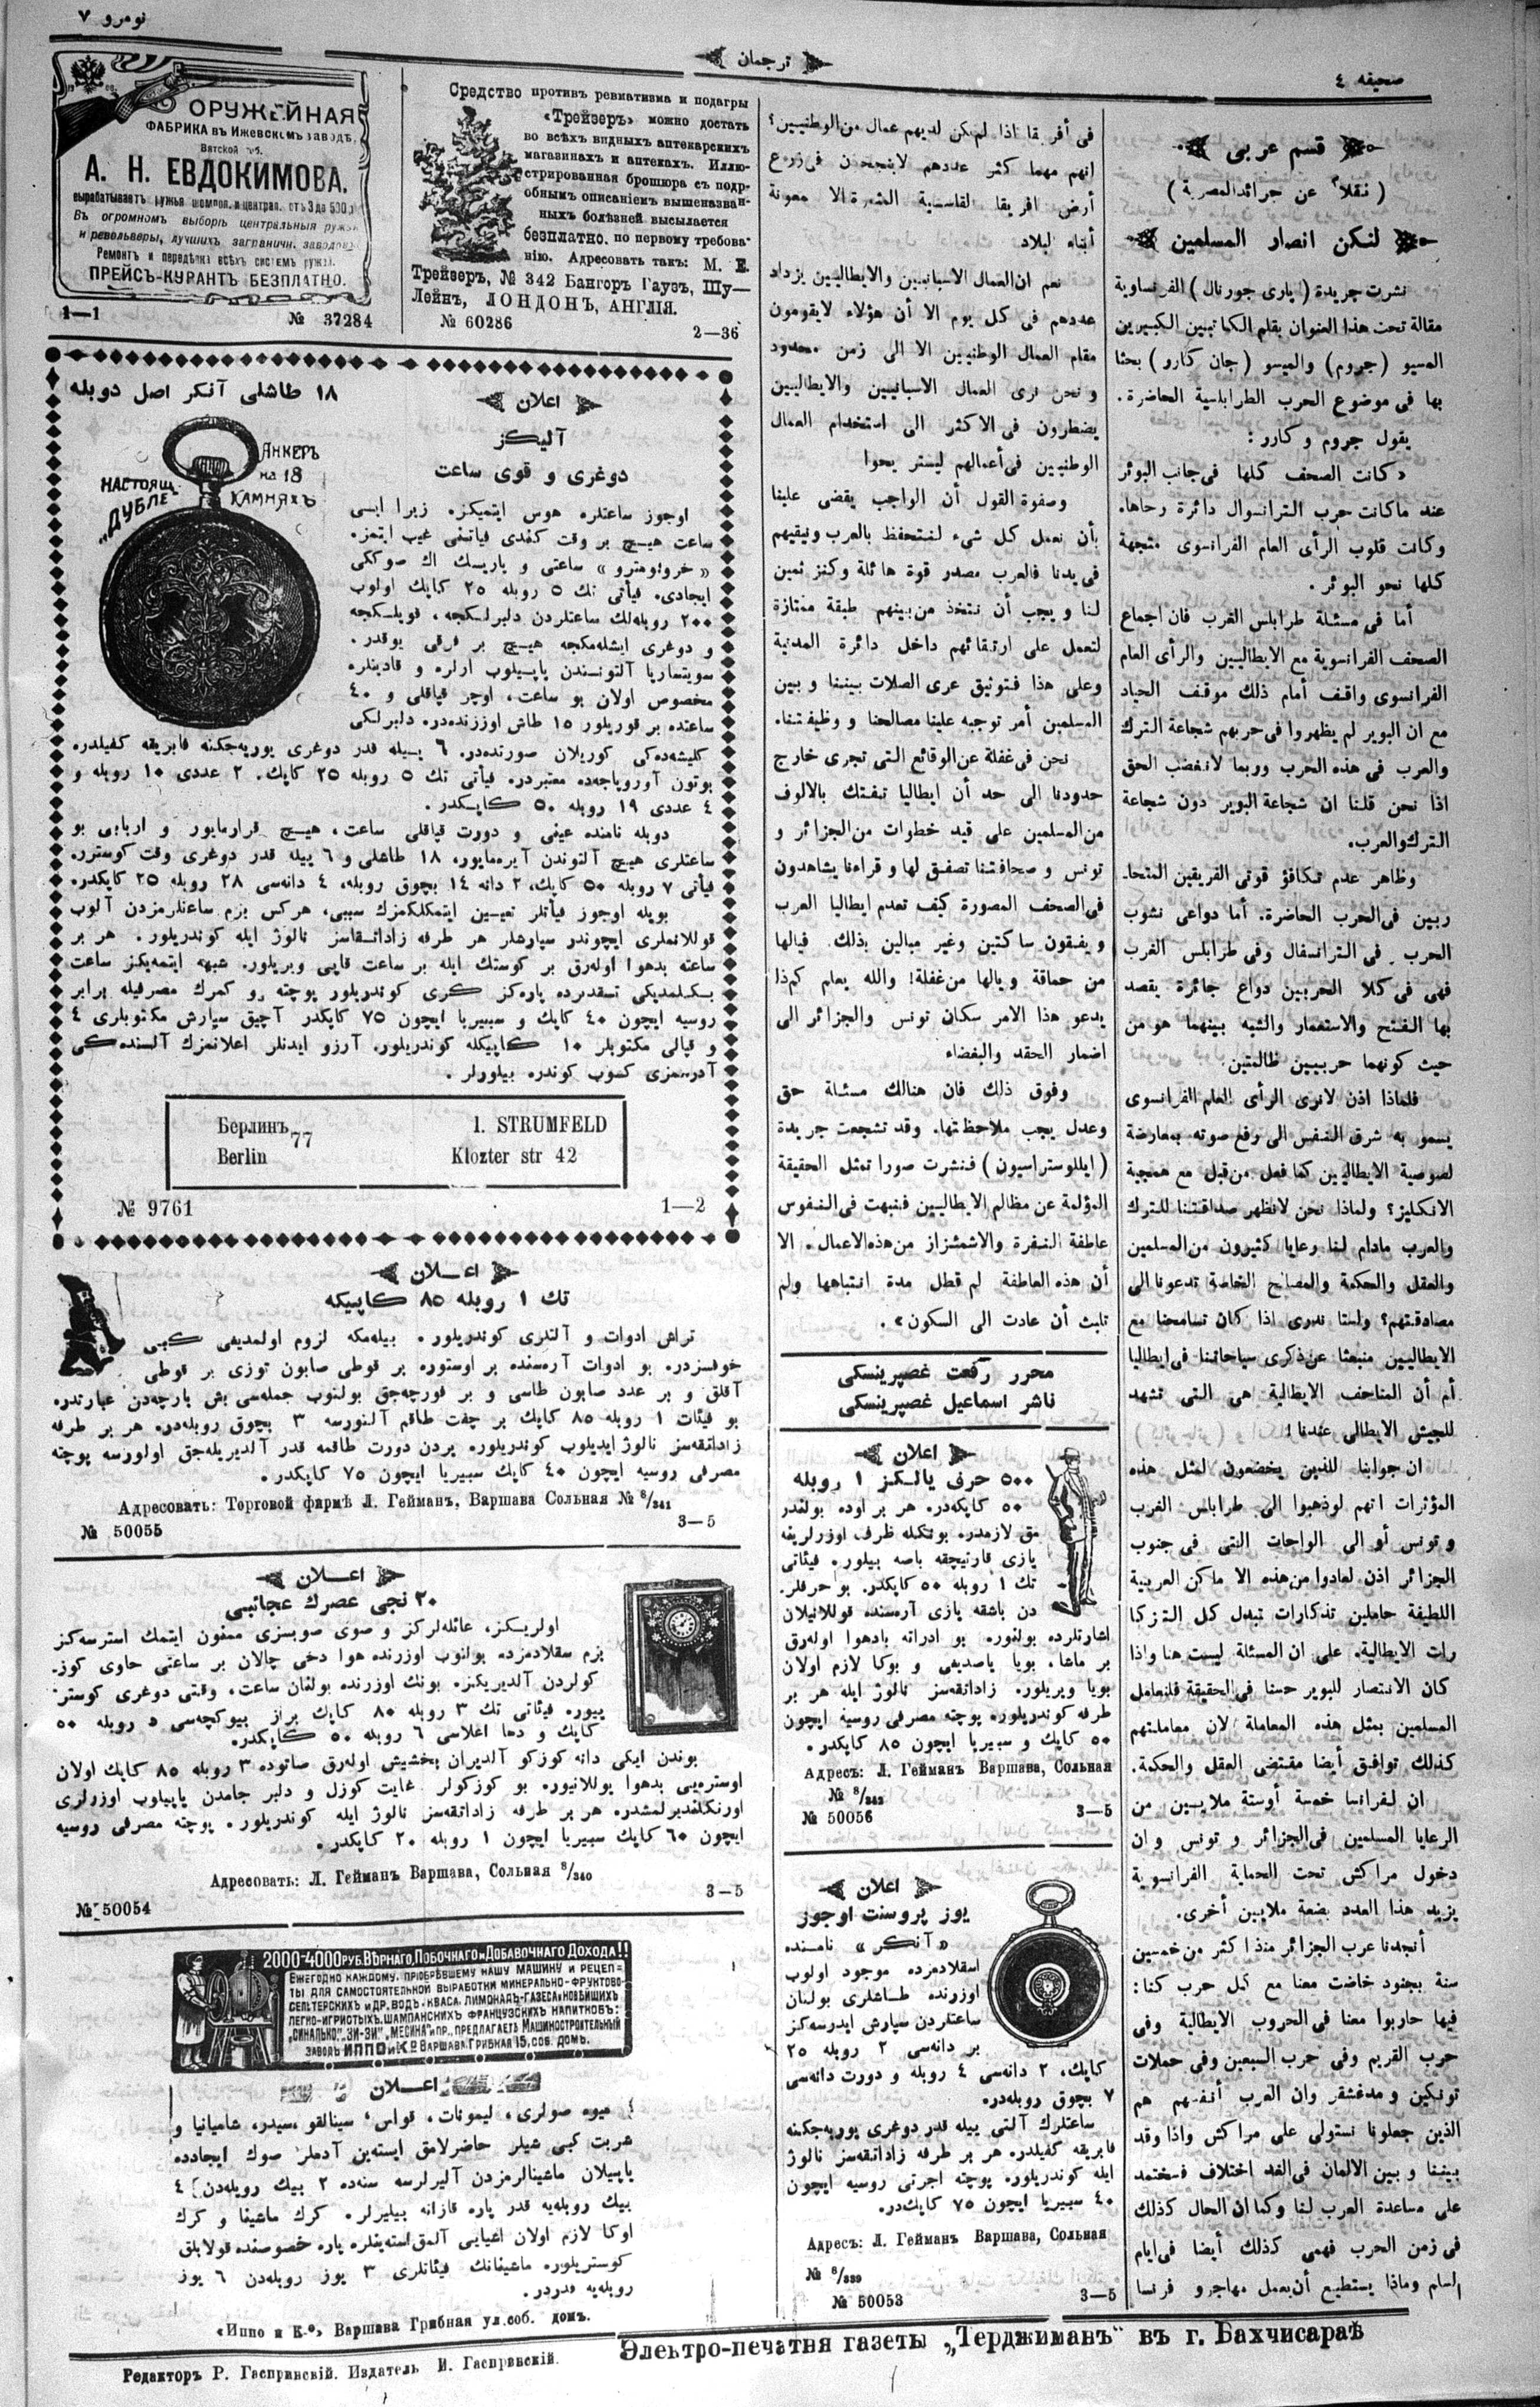 صحيفه ٤
ترجمان
نومرو ٧
قسم عربى
( نقلاً عن جرائد المصرية )
لنكن انصار المسلمين
نشرت جريدة ( پارى جورنال ) الفرنساوية
مقالة تحت هذا العنوان بقلم الكاتبين الكبيرين
المسيو ( جروم ) والميسو ( جان كارر ) بحثا
بها فى موضوع الحرب الطرابلسية الحاضرة.
يقول جروم و كارر :
« كانت الصحف كلها فى جانب البوئر
عند ما كانت حرب الترانسوال دائرة رحاها.
وكانت قلوب الرأى العام الفرانسوى متجهة
كلها نحو البوئر .
أما فى مسئلة طرابلس الغرب فان اجماع
الصحف الفرانسوية مع الايطاليين والرأى العام
الفرانسوى واقف أمام ذلك موقف الحياد
مع ان البوير لم يظهروا فى حربهم شجاعة الترك
والعرب فى هذه الحرب وربما لانغضب الحق
اذا نحن قلنا ان شجاعة البوير دون شجاعة
الترك والعرب.
وظاهر عدم تكافؤ قوتى الفريقين المتحا-
ربين فى الحرب الحاضرة. أما دواعى نشوب
الحرب . فى الترانسفال وفى طرابلس الغرب
فهى فى كلا الحربين دواع جائرة يقصد
بها الفتح والاستعمار والشبه بينهما هو من
حيث كونهما حربيين ظالمتين.
فلماذا اذن لانرى الرأى العام الفرانسوى
يسمو به شرف النفس الى رفع صوته بمعارضة
لصوصية الايطاليين كما فعل من قبل مع همجية
الانكليز؟ ولماذا نحن لانظهر صداقتنا للترك
والعرب مادام لنا رعايا كثيرون من المسلمين
والعقل والحكمة والمصالح الخاصة تدعونا الى
مصادقتهم؟ ولسنا ندرى اذا كان تسامحنا مع
الايطاليين منبعثا عن ذكرى سياحاتنا فى ايطاليا
أم أن المتاحف الايطالية هى التى تشهد
للجيش الايطالى عندنا!
ان جوابنا للذين يخضعون لمثل هذه
المؤثرات انهم لوذهبوا الى طرابلس الغرب
و تونس أو الى الواحات التى فى جنوب
الجزائر اذن لعادوا من هذه الا ماكن العربية
اللطيفة حاملين تذكارات تبدل كل التزكا
رات الايطالية. على ان المسئلة ليست هنا واذا
كان الانتصار للبوير حسنا فى الحقيقة فلنعامل
المسلمين بمثل هذه المعاملة لان معاملتهم
كذلك توافق أيضا مقتضى العقل والحكمة.
ان لفرانسا خمسة أوستة ملايسين من
الرعايا المسلمين فى الجزائر و تونس وان
دخول مراكش تحت الحماية الفرانسوية
يزيد هذا العدد بضعة ملايين أخرى.
أنجدنا عرب الجزائر منذ اكثر من خمسين
سنة بجنود خاضت معنا مع كل حرب كنا:
فيها حاربوا معنا فى الحروب الايطالية وفى
حرب القريم وفى حرب السبعين وفى حملات
تونكين و مدغشقر وان العرب أنفسهم هم
الذين جعلونا نستولى على مراكش واذا وقد
بيننا و بين الالمان فى الغد اختلاف فسنعتمد
على مساعدة العرب لنا وكما ان الحال كذلك
فى زمن الحرب فهى كذلك أيضا فى ايام
السلم وماذا يستطيع أن يعمل مهاجرو فرنسا
فى أفريقا اذا لم تكن لديهم عمال من الوطنيين؟
انهم مهما كثر عددهم لاينجحون فى زرع
أرض افريقا القاسية الثمرة الا معونة
أبناء البلاد
نعم ان العمال الاسبانيين والايطاليين يزداد
عددهم فى كل يوم الا أن هؤلاء لايقومون
مقام العمال الوطنيين الا الى زمن محدود
و نحن نرى العمال الاسبانيين والايطاليين
يضطرون فى الاكثر الى استخدام العمال
الوطنيين فى أعمالهم ليستر يحوا
وصفوة القول أن الواجب يقضى علينا
بأن نعمل كل شىء لنحتفظ بالعرب ونبقيهم
فى يدنا فالعرب مصدر قوة هائلة وكنز ثمين
لنا و يجب أن نتخذ من بينهم طبقة ممتازة
لتعمل على ارتقائهم داخل دائرة المدنية
وعلى هذا فتوثيق عرى الصلات بيننا و بين
المسلمين أمر توجبه علينا مصالحنا و وظيفتنا.
نحن فى غفلة عن الوقائع التى تجرى خارج
حدودنا الى حد أن ايطاليا تفتك بالالوف
من المسلمين على قيد خطوات من الجزائر و
تونس و صحافتنا تصفق لها و قراءنا يشاهدون
فى الصحف المصورة كيف تعدم ايطاليا العرب
و يبقون ساكتين وغير مبالين بذلك. فيالها
من حماقة و يالها من غفلة! والله يعلم كم ذا
يدعو هذا الامر سكان تونس والجزائر الى
اضمار الحقد والبغضاء
وفوق ذلك فان هنالك مسئلة حق
وعدل يجب ملاحظتها. وقد تشجعت جريدة
( ايللوستراسيون ) فنشرت صورا تمثل الحقيقة
المؤلمة عن مظالم الايطاليين فنبهت فى النفوس
عاطفة النفرة والاشمئزاز من هذه الاعمال. الا
أن هذه العاطفة لم تطل مدة انتباهها ولم
تلبث أن عادت الى السكون ».
محرر رفعت غصپرينسكى
ناشر اسماعيل غصپرينسكى
اعلان
٥٠٠ حرف يالكز ١ روبله
٥٠ كاپكه در. هر بر اوده بولنمق
تك ١ روبله ٥٠ كاپكدر. بو حرفلر-
دن باشقه يازى آره سنده قوللانيلان
اشارتلرده بولنور. بو ادراته بادهوا اوله رق
طرفه كوندريلور. پوچته مصرفى روسيه ايچون
٥٠ كاپك و سبيريا ايچون ٨٥ كاپكدر.
Адресъ: Л. Гейманъ Варшава, Сольная
№ 8/342
№ 50056
3—5
اعلان
يوز پروسنت اوجوز
« آنكر » نامنده
اسقلادمزده موجود اولوب
اوزرنده طاشلرى بولنان
ساعتلردن سپارش ايدرسه كز
بر دانه سى ٢ روبله ٢٥
كاپك، ٢ دانه سى ٤ روبله و دورت دانه سى
٧ بچوق روبله در.
ساعتلرك آلتى ييله قدر دوغرى يوريه جكنه
فابريقه كفيلدر. هر بر طرفه زاداتقه سز نالوژ
ايله كوندريلور. پوچته اجرتى روسيه ايچون
٤٠ سبيريا ايچون ٧٥ كاپك در.
Адресъ: Л. Гейманъ Варшава, Сольная
№ 8/339
№ 50053
3—5
Средство противъ ревматизма и подагры
«Трейзеръ» можно достать
во всѣхъ видныхъ аптекарскихъ
магазинахъ и аптекахъ. Иллю-
стрированная брошюра съ подр-
обнымъ описаніемъ вышеназван-
ныхъ болѣзней высылается
безплатно. по первому требова-
нію. Адресовать такъ: М. Е.
Трейзеръ, № 342 Бангоръ Гаузъ, Шу—
Лейнъ, ЛОНДОНЪ, АНГЛІЯ.
№ 60286
2—36
ОРУЖЕЙНАЯ
ФАБРИКА въ Ижевскомъ заводѣ,
Вятской губ.
А. Н. ЕВДОКИМОВА.
вырабатываетъ ружья шомпол. и централ. отъ 3 до 500 р
Въ огромномъ выборѣ центральныя ружья
и револьверы, лучшихъ заграничн. заводовъ
Ремонтъ и передѣлка всѣхъ системъ ружья.
ПРЕЙСЪ-КУРАНТЪ БЕЗПЛАТНО.
1—1
№ 37284
اعلان
١٨ طاشلى آنكر اصل دوبله
آليكز
دوغرى و قوى ساعت
НАСТОЯЩ.
„ДУБЛЕ
АНКЕРЪ
на 18
КАМНЯХЪ
اوجوز ساعتلره هوس ايتميكز. زيرا ايسى
ساعت هيچ بر وقت كندى فياتنى غيب ايتمز.
« خرونومترو » ساعتى و پاريسك اك صوككى
ايجادى. فياتى تك ٥ روبله ٢٥ كاپك اولوب
٢٠٠ روبله لك ساعتلردن دلبرلكجه ، قويلكجه
و دوغرى ايشله مكجه هيچ بر فرقى يوقدر .
سويتساريا آلتونسندن ياپيلوب ارلره و قادينلره
مخصوص اولان بو ساعت، اوچر قپاقلى و ٤٠
ساعتده بر قوريلور ١٥ طاش اوززنده در. دلبرلكى
كليشه ده كى كوريلان صورنده در. ٦ ييله قدر دوغرى يوريه جكنه فابريقه كفيلدره
بوتون آوروپاجه ده معتبردر. فيأتى تك ٥ روبله ٢٥ كاپك. ٢ عددى ١٠ روبله و
٤ عددى ١٩ روبله ٥٠ كاپكدر .
دوبله نامنده عينى و دورت قپاقلى ساعت، هيچ قرارمايور و اربابى بو
ساعتلرى هيچ آلتوندن آيره مايور، ١٨ طاشلى و ٦ ييله قدر دوغرى وقت كوسترر.
فيأتى ٧ روبله ٥٠ كاپك، ٢ دانه ١٤ بچوق روبله، ٤ دانه سى ٢٨ روبله ٢٥ كاپكدر.
بويله اوجوز فيأتلر تعيين ايتمكلكمزك سببى، هركس بزم ساعتلرمزدن آلوب
قوللانملرى ايچوندر سپارشلر هر طرفه زاداتقاسز نالوژ ايله كوندريلور. هر بر
ساعته بدهوا اوله رق بر كوستك ايله بر ساعت قابى ويريلور. شبهه ايتمه يكز ساعت
بكنلمديكى تقديرده پاره كز كرى كوندريلور پوچته و كمرك مصرفيله برابر
روسيه ايچون ٤٠ كاپك و سيبيريا ايچون ٧٥ كاپكدر آچيق سپارش مكتوبلرى ٤
و قپالى مكتوبلر ١٠ كاپيكله كوندريلور. آرزو ايدنلر اعلانمزك آلسنده كى
آدرسمزى كسوب كوندره بيلورلر .
Берлинъ 77
Berlin
I. STRUMFELD
Klozter str 42
№ 9761
1—2
اعلان
تك ١ روبله ٨٥ كاپيكه
تراش ادوات و آلتلرى كوندريلور. بيله مكه لزوم اولمديغى كبى
خوفسزدر. بو ادوات آره سنده بر اوستوره بر قوطى صابون توزى بر قوطى
آقلق و بر عدد صابون طاسى و بر فورچه جق بولنوب جمله سى بش پارچه دن عبارتدره
بو فيئات ١ روبله ٨٥ كاپك بر چفت طاقم آلنورسه ٣ بچوق روبله در. هر بر طرفه
زاداتقه سز نالوژ ايديلوب كوندريلور. بردن دورت طاقمه قدر آلديريله جق اولورسه پوچته
مصرفى روسيه ايچون ٤٠ كاپك سيبيريا ايچون ٧٥ كاپكدر.
Адресовать: Торговой фирмѣ Л. Гейманъ, Варшава Сольная № 8/341
№ 50055
3—5
اعلان
٢٠ نجى عصرك عجائبى
اولريكز، عائله لركز و صوى صوپسزى ممنون ايتمك استرسه كز
بزم سقلادمزده بولنوب اوزرنده هوا دخى چالان بر ساعتى حاوى كوز-
كولردن آلديريكز. بونك اوزرنده بولنان ساعت، وقتى دوغرى كوستر-
ييور. فيئاتى تك ٣ روبله ٨٠ كاپك براز بيوكچه سى ٥ روبله ٥٠
كاپك و دها اعلاسى ٦ روبله ٥٠ كاپكدر.
بوندن ايكى دانه كوزكو آلديران بخشيش اوله رق صاتوده ٣ روبله ٨٥ كاپك اولان
اوستره يى بدهوا يوللانيور. بو كوزكولر غايت كوزل و دلبر جامدن ياپيلوب اوزرلرى
اورنكلنديرلمشدر. هر بر طرفه زاداتقه سز نالوژ ايله كوندريلور. پوچته مصرفى روسيه
ايچون ٦٠ كاپك سيبيريا ايچون ١ روبله ٢٠ كاپكدر.
Адресовать: Л. Гейманъ Варшава, Сольная 8/340
№ 50054
3—5
2000-4000 РУБ. ВѢРНАГО, ПОБОЧНАГО и ДОБАВОЧНАГО ДОХОДА!!
ЕЖЕГОДНО КАЖДОМУ, ПРІОБРѢВШЕМУ НАШУ МАШИНУ И РЕЦЕП=
ТЫ ДЛЯ САМОСТОЯТЕЛЬНОЙ ВЫРАБОТКИ МИНЕРАЛЬНО-ФРУКТОВО-
СЕЛЬТЕРСКИХЪ И ДР. ВОДЪ, КВАСА, ЛИМОНАДЪ-ГАЗЕСА И НОВѢЙШИХЪ
ЛЕГКО-ИГРИСТЫХЪ, ШАМПАНСКИХЪ ФРАНЦУЗСКИХЪ НАПИТКОВЪ:
„СИНАЛЬКО", „ЗИ-ЗИ", „МЕСИНА" И ПР., ПРЕДЛАГАЕТЪ МАШИНОСТРОИТЕЛЬНЫЙ
ЗАВОДЪ ИППО и Ко ВАРШАВА ГРИБНАЯ 15, СОБ. ДОМЪ.
اعلان
ميوه صولرى، ليمونات، قواس، سينالقو، سيدر، شامپانيا و
شربت كبى شيلر حاضرلامق ايسته ين آدملر صوك ايجادده
ياپيلان ماشينالرمزدن آليرلرسه سنه ده ٢ بيك روبله دن ٤
بيك روبله يه قدر پاره قازانه بيليرلر. كرك ماشينا و كرك
اوكا لازم اولان اشيايى آلمق استه ينلره پاره خصوصنده قولايلق
كوستريلور. ماشينانك فيئاتلرى ٣ يوز روبله دن ٦ يوز
روبله يه قدردر.
«Иппо и К-º» Варшава Грибная ул. соб. домъ.
Электро-печатня газеты „Терджиманъ" въ г. Бахчисараѣ
Редакторъ Р. Гаспринскій. Издатель И. Гаспринскій.